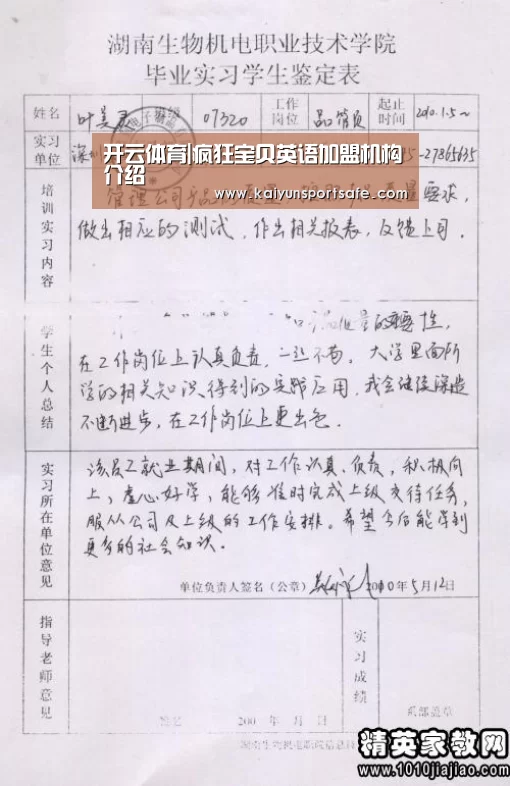 湖南生物机电职业技术学院
毕业实习学生鉴定表
姓名 叶美 07320 工作岗位 品管员 起止时间 2010.1.5~
实习单位 -27865635
开云体育|疯狂宝贝英语加盟机构
介绍
www.kaiyunsportsafe.com
培训实习内容
管理公司产品 要求,
做出相应的测试,作出相关报表,反馈上司.
学生个人总结
质量的重要性,
在工作岗位上认真负责,一丝不苟,大学里面所
学的相关知识得到的实际应用,我会继续深造
不断进步,在工作岗位上更出色.
实习所在单位意见
该员工就业期间,对工作认真、负责,积极向
上,虚心好学,能够准时完成上级交待任务,
服从公司及上级的工作安排。希望今后能学到
更多的社会知识.
单位负责人签名(公章) 2010年5月12日
指导老师意见
实习成绩
签名 200 年 月 日
系部盖章
湖南生物机电职院
精英家教网
www.1010jiajiao.com